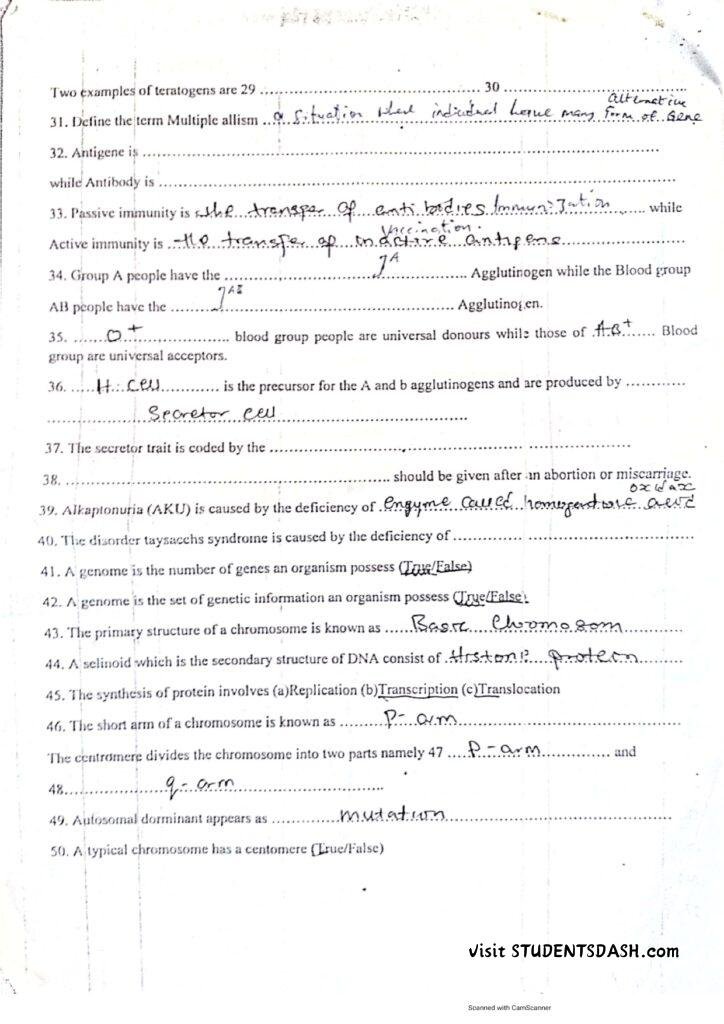 Two examples of teratogens are 29 .................................................. 30 ..............................................
alternative
31. Define the term Multiple allism ..a situation where individual have many form of Gene
32. Antigene is ......................................................................................................
while Antibody is ......................................................................................................
33. Passive immunity is ..the transfer of antibodies Immunization...... while
Vaccination.
Active immunity is ..the transfer of inactive antigene..............................
34. Group A people have the ..............................IA.................. Agglutinogen while the Blood group
AB people have the ..........IAB.................................................. Agglutinogen.
35. .......O+.......................... blood group people are universal donours while those of ..AB+...... Blood
group are universal acceptors.
36. .....H. Cell............ is the precursor for the A and b agglutinogens and are produced by ............
...................... Secretor cell ..................................................
37. The secretor trait is coded by the ......................................................................
38. ...................................................................... should be given after an abortion or miscarriage.
39. Alkaptonuria (AKU) is caused by the deficiency of ..enzyme called
40. The disorder taysacchs syndrome is caused by the deficiency of ..................................................
41. A genome is the number of genes an organism possess (True/False)
42. A genome is the set of genetic information an organism possess (True/False)
43. The primary structure of a chromosome is known as ......Basic Chromosom............
44. A selinoid which is the secondary structure of DNA consist of ..Histone protein............
45. The synthesis of protein involves (a)Replication (b)Transcription (c)Translocation
46. The short arm of a chromosome is known as ..........P- arm..................................................
The centromere divides the chromosome into two parts namely 47 ....P-arm.................. and
48......................q- arm..............................
49. Autosomal dorminant appears as ..............mutation..................................................
50. A typical chromosome has a centomere (True/False)
visit STUDENTSDASH.com
Scanned with CamScanner